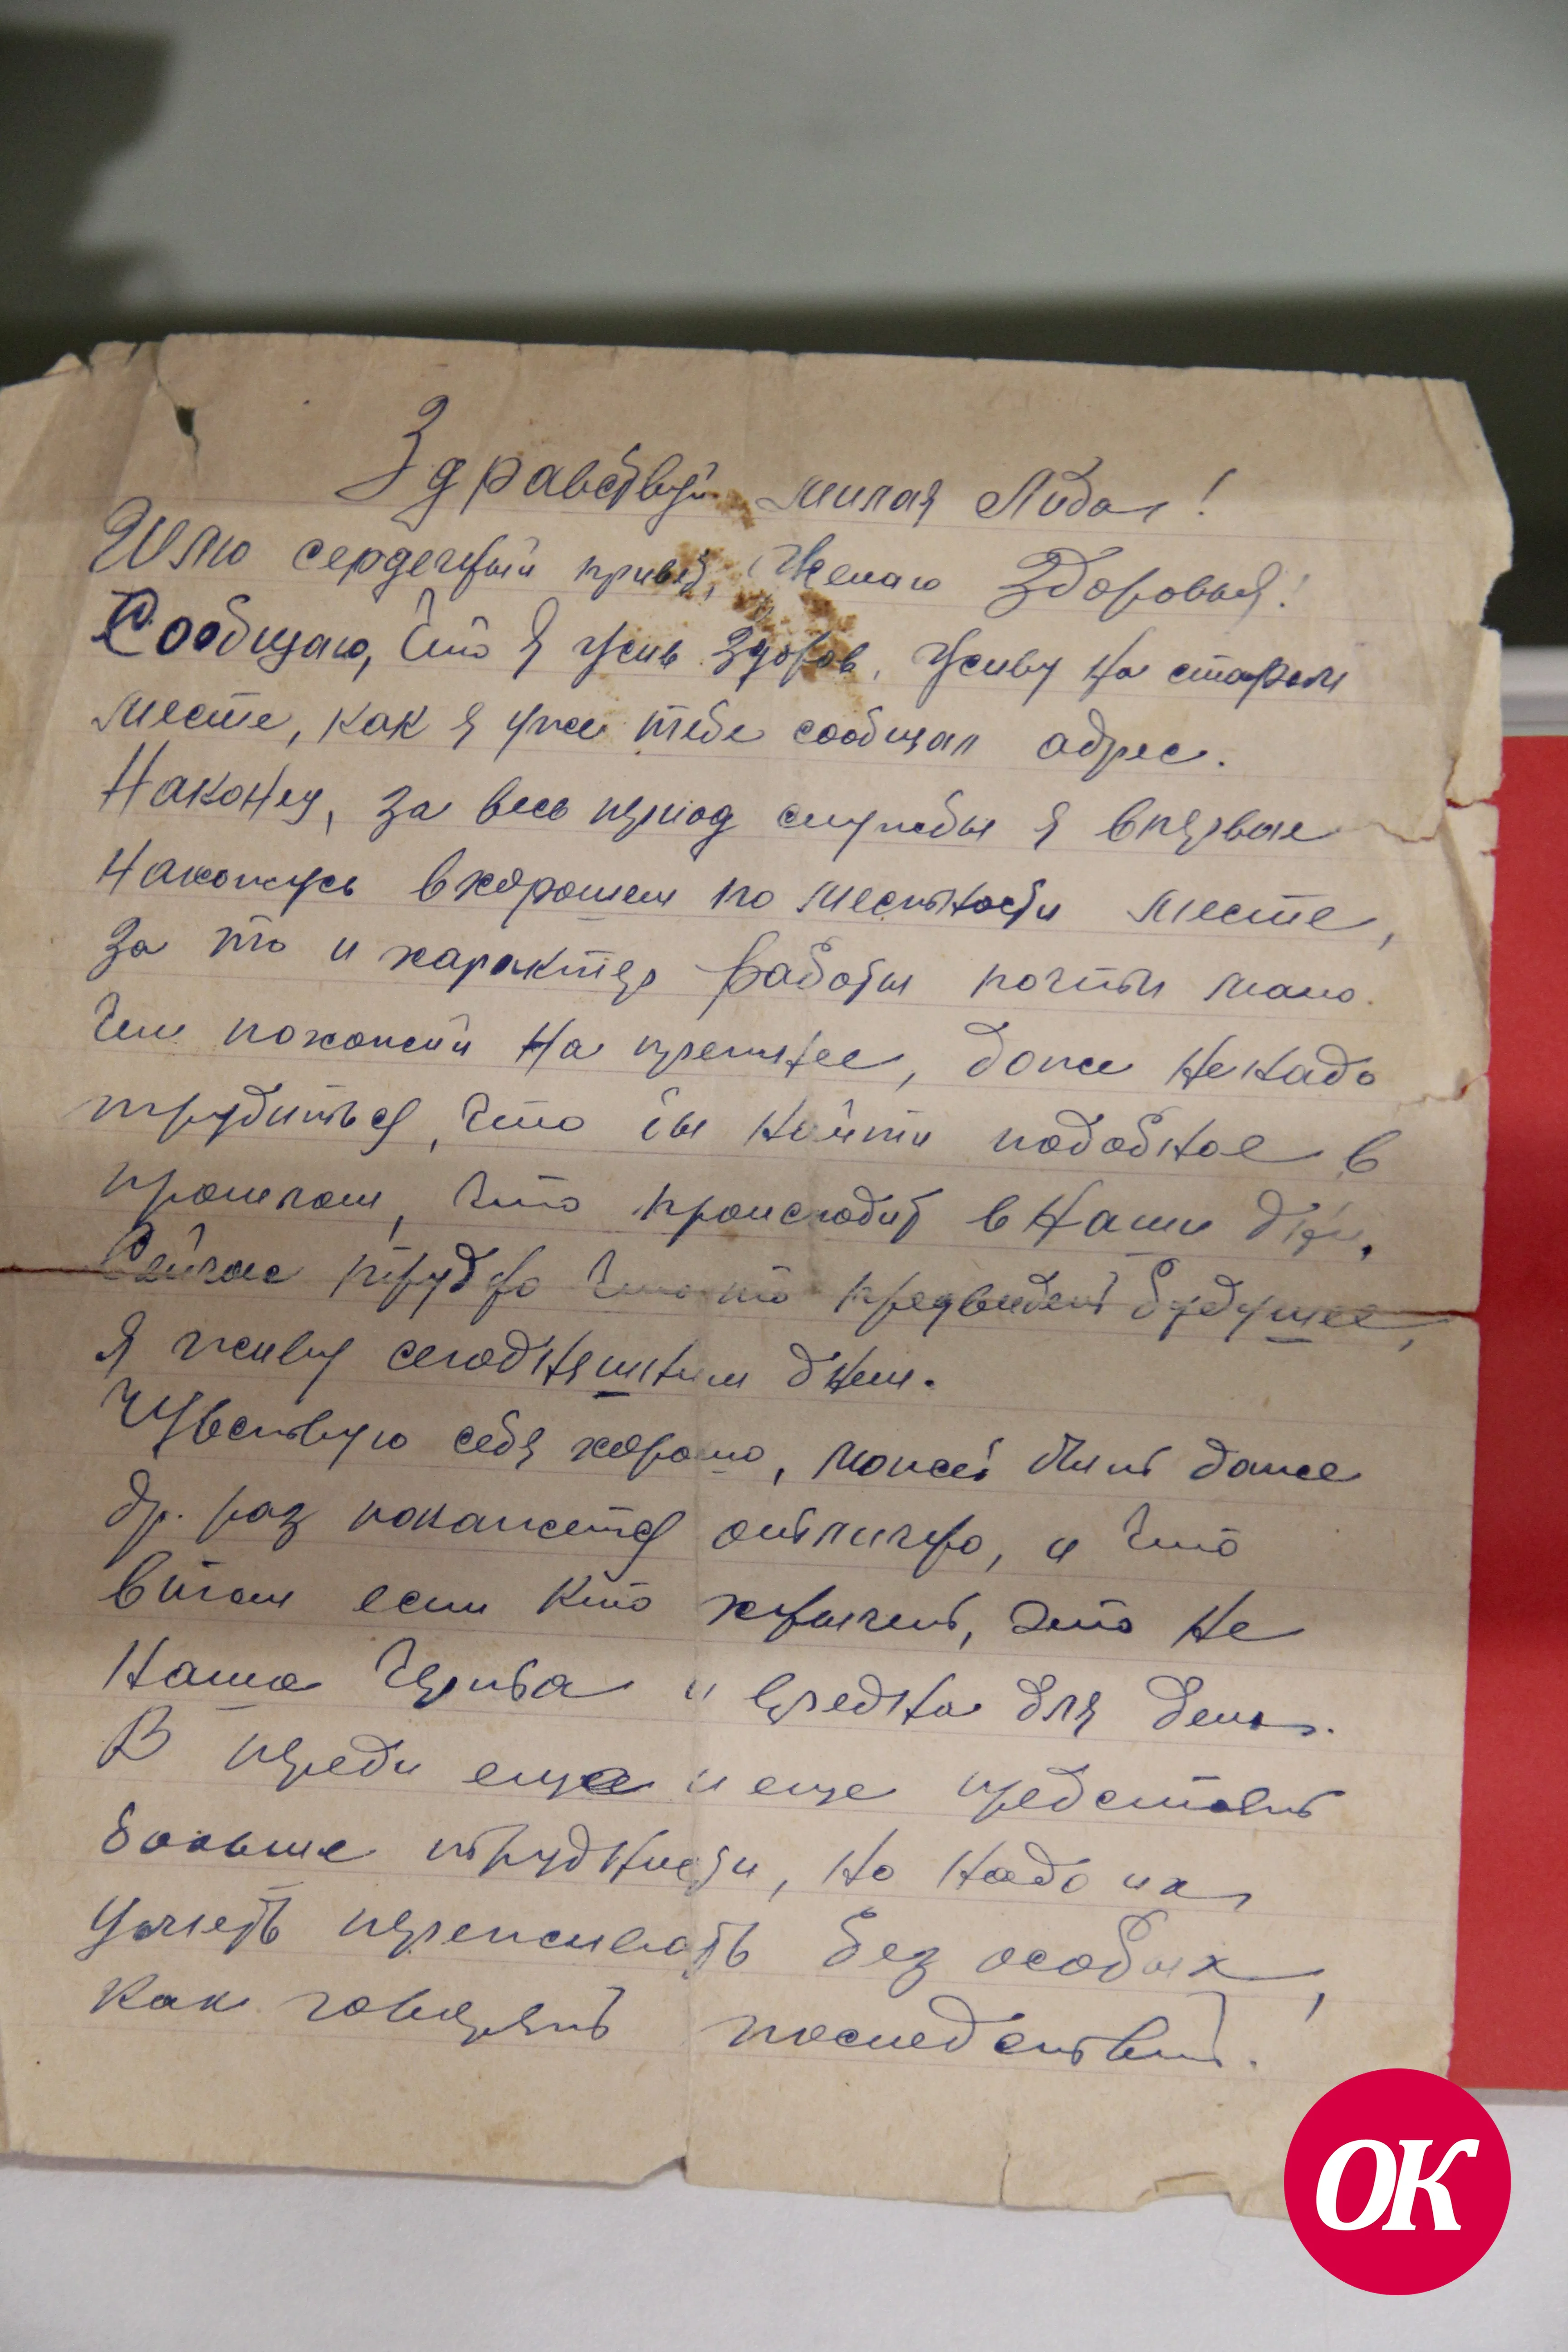 Здравствуй милая Лида!
Шлю сердечный привет, Желаю Здоровья!
Сообщаю, что я жив здоров, живу на старом
месте, как я уже тебе сообщал адрес.
Наконец, за весь период службы я впервые
нахожусь в хорошем по местности месте,
за то и характер работы почти мало
чем похожий на прежнее, даже не надо
трудиться, что бы найти подобное в
прошлом, что происходит в наши дни.
Сейчас трудно что то предвидеть будущее,
я живу сегодняшним днем.
Чувствую себя хорошо, может быть даже
др. раз покажется отлично, и что
в том если кто хнычет, это не
наша черта и вредна для дела.
В переди еще и еще предстоят
больше трудности, но надо их
уметь переживать без особых,
как говорят последствий.
ОК